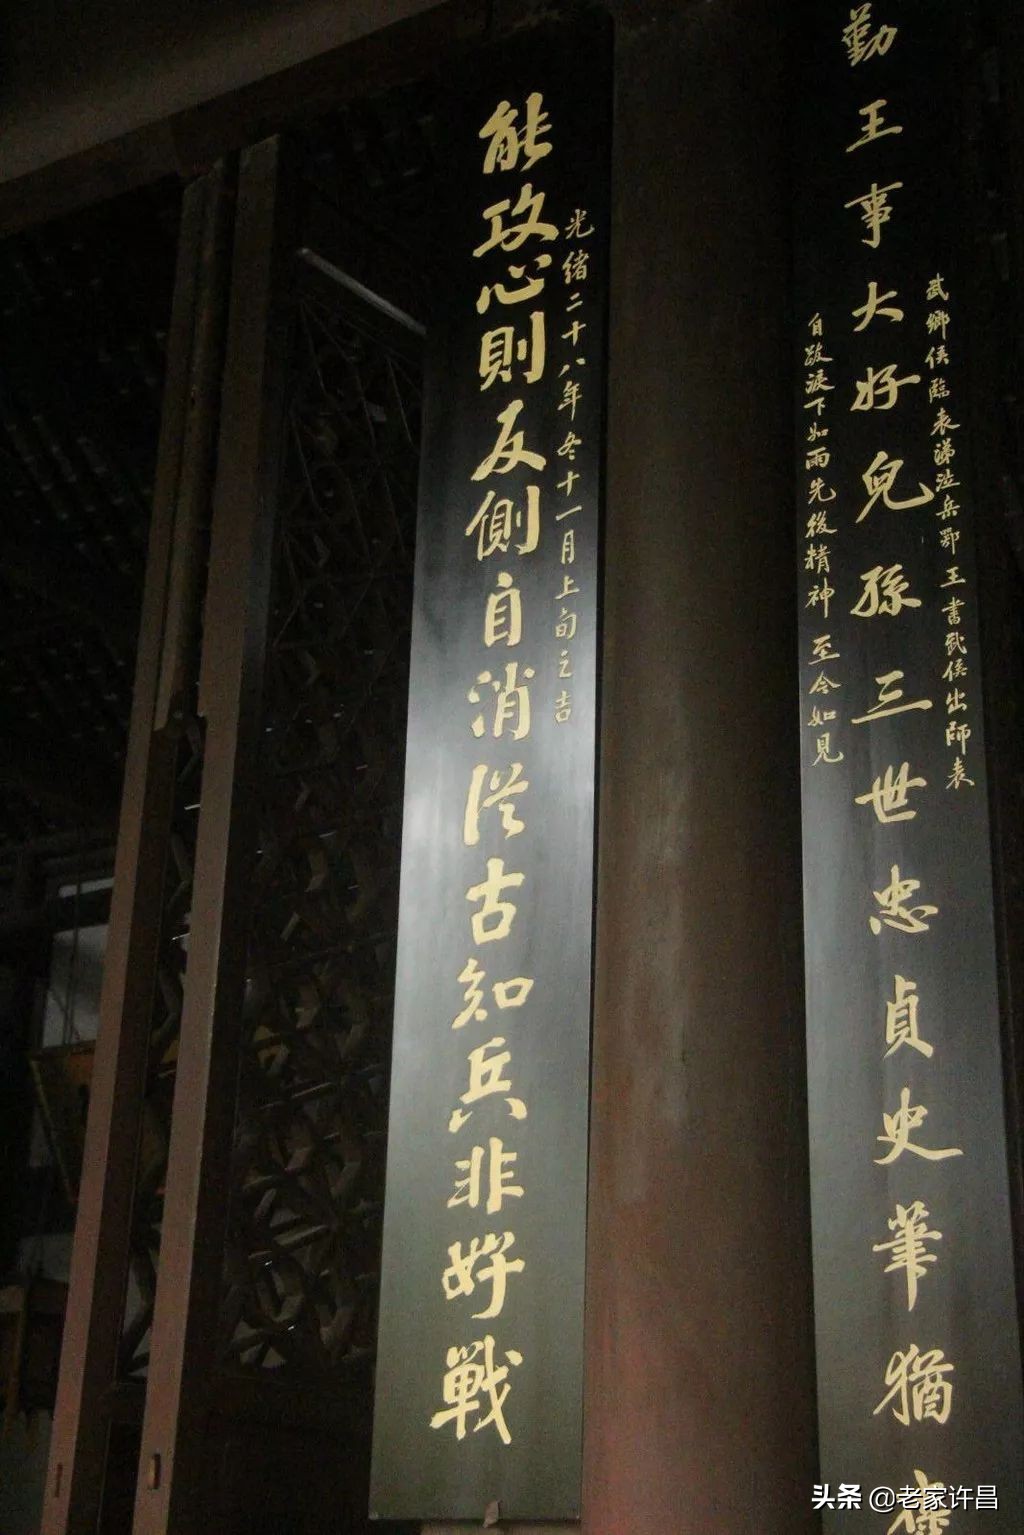 武鄉侯臨表涕泣岳鄂王書武侯出師表
勤王事大好兒孫三世忠貞史筆猶褒
自跋淚下如雨先後精神至今如見
光緒二十八年冬十一月上旬之吉
能攻心則反側自消從古知兵非好戰
头条 @老家许昌